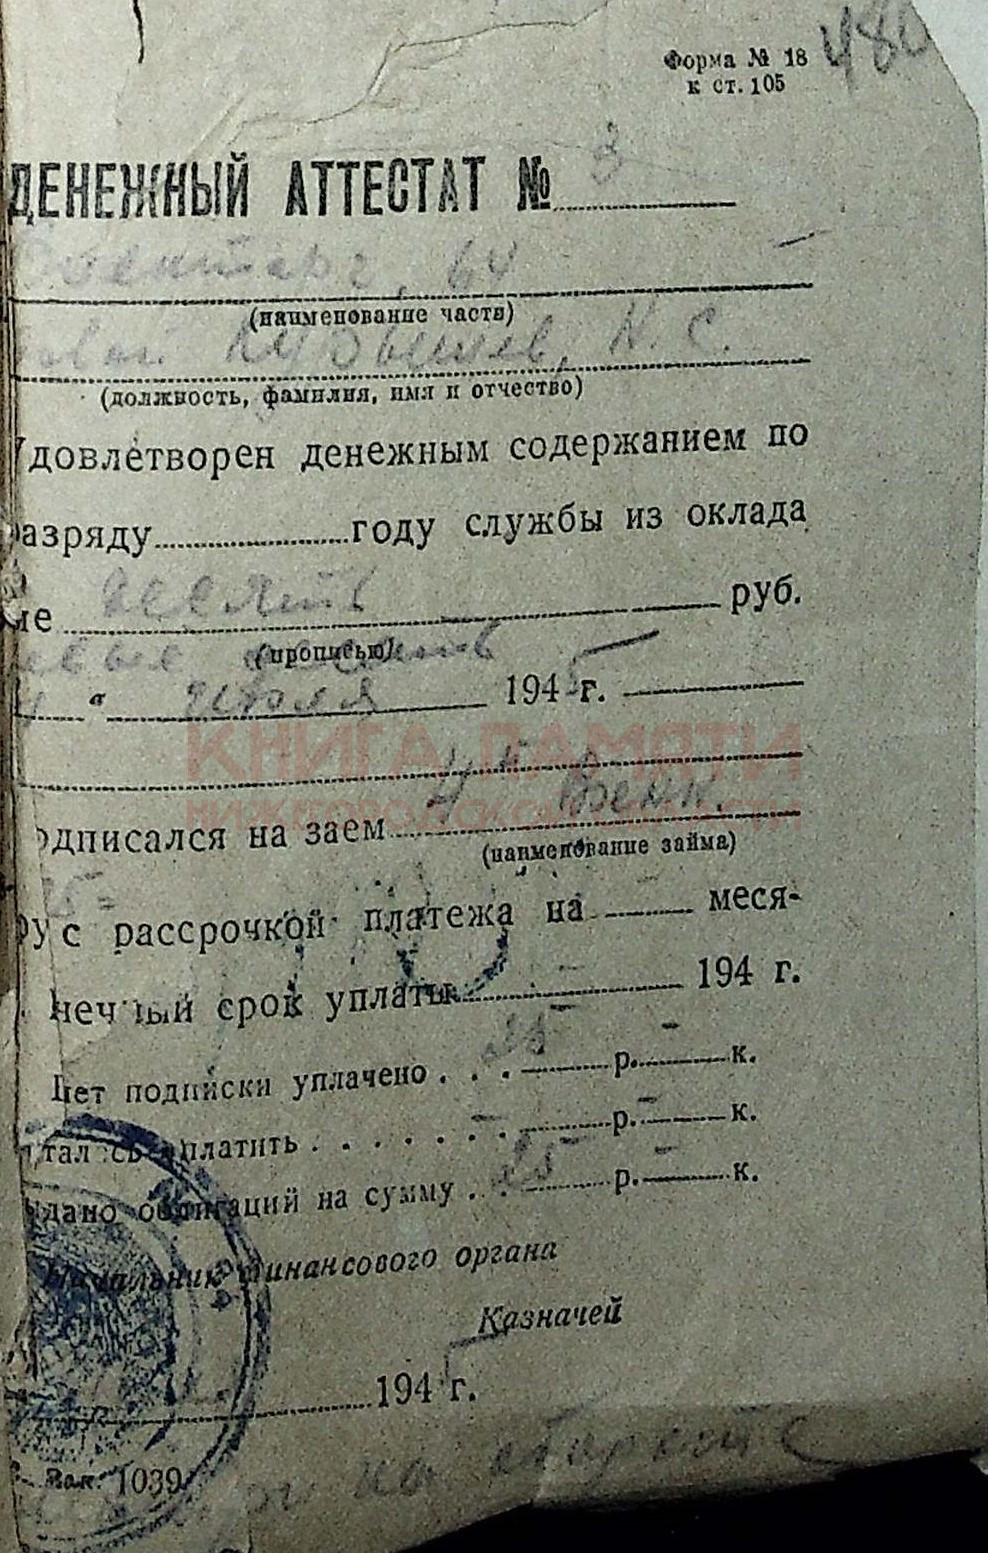 Форма № 18
к ст. 105
480
ДЕНЕЖНЫЙ АТТЕСТАТ № 3
Военторг, 64
(наименование части)
Н. С.
(должность, фамилия, имя и отчество)
Удовлетворен денежным содержанием по
разряду году службы из оклада
руб.
(прописью)
" июля 1945 г.
КНИГА ПАМЯТИ
НИЖЕГОРОДСКОЙ ОБЛАСТИ
одписался на заем 4й Воен.
(наименование займа)
25=
у с рассрочкой платежа на меся-
нечный срок уплаты 194 г.
чет подписки уплачено . . . 25 р. - к.
талось платить . . . . . . . - р. - к.
ыдано облигаций на сумму . . 25 р. - к.
Начальник финансового органа
Казначей
1945 г.
Зак. 1039
на обороте